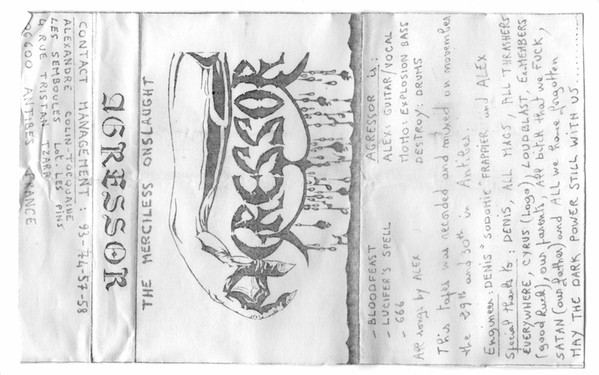 CONTACT MANAGEMENT : 93-74-57-58
ALEXANDRE COLIN-TOCQUAINE
LES SEMBOULES LES PINS
4 RUE TRISTAN TZARA
06600 ANTIBES FRANCE
AGRESSOR
THE MERCILESS ONSLAUGHT
AGRESSOR
- BLOODFEAST
- LUCIFER'S SPELL
- 666
All songs by ALEX
AGRESSOR is:
ALEX: GUITAR/VOCAL
MOHO: EXPLOSION BASS
DESTROY: DRUMS
This tape was recorded and mixed on november
the 29th and 30th in Antibes.
Engineer: DENIS" SODOMIC FRAPPIER and ALEX
Special thanks to: DENIS, ALL MAGS, ALL THRASHERS
EVERYWHERE, CYRUS (Logo), LOUDBLAST, Ex-MEMBERS
(good luck), our parents, All bitch that we FUCK,
SATAN (our father) and All we have forgotten
MAY THE DARK POWER STILL WITH US ........